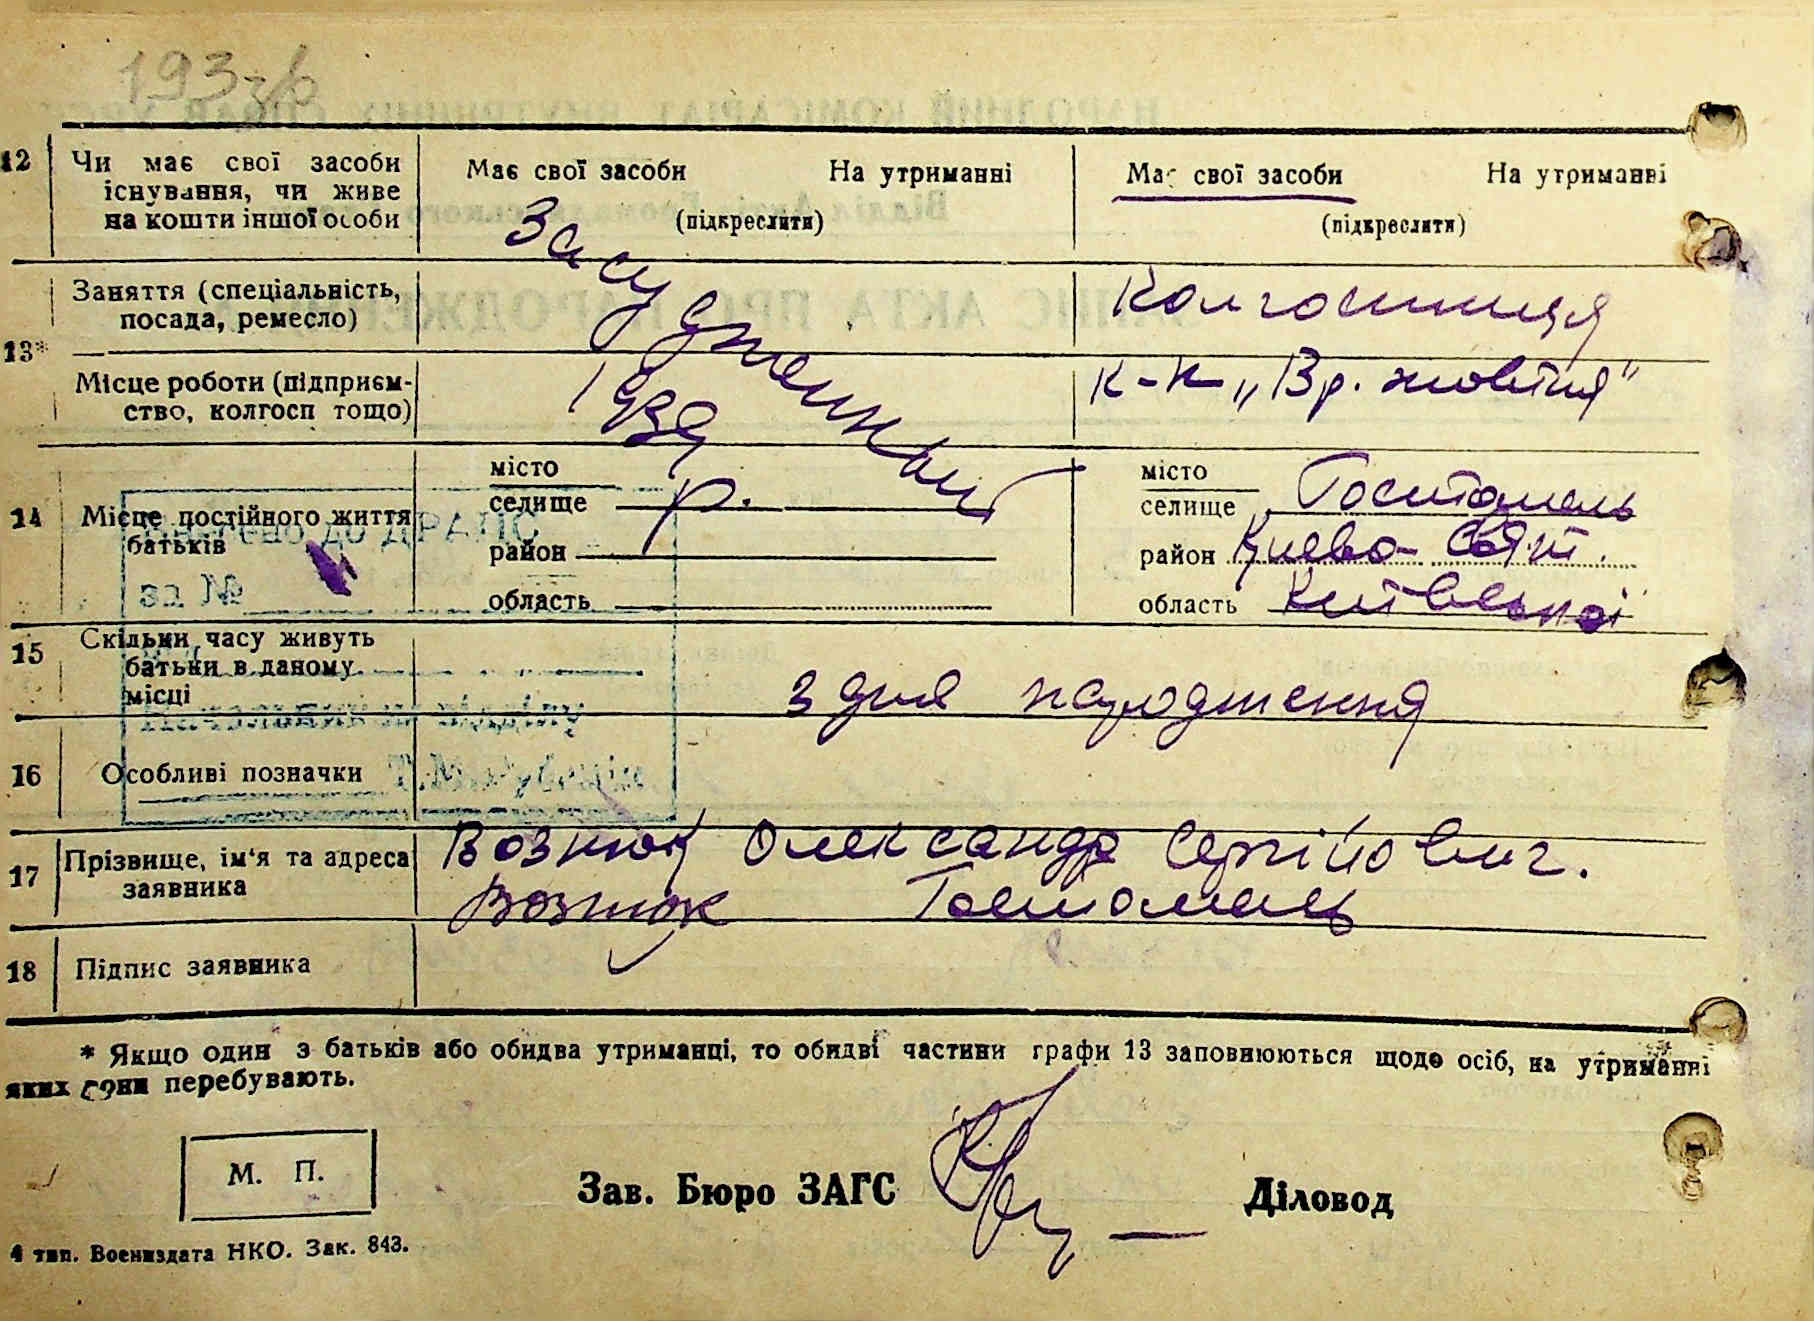 193 зв
12 Чи має свої засоби існування, чи живе на кошти іншої особи
Має свої засоби На утриманні
(підкреслити)
Має свої засоби На утриманні
(підкреслити)
Засуджений
193 р.
13* Заняття (спеціальність, посада, ремесло)
Колгоспниця
Місце роботи (підприємство, колгосп тощо)
к-п „Вр. жовтня"
14 Місце постійного життя батьків
місто
селище
район
область
місто
селище Гостомель
район Києво-Свят.
область Київської
Внесено до ДРАЦС
за №
15 Скільки часу живуть батьки в даному місці
з дня народження
16 Особливі позначки
17 Прізвище, ім'я та адреса заявника
Вознюк Олександр Сергійович.
Вознюк Гостомель
18 Підпис заявника
* Якщо один з батьків або обидва утриманці, то обидві частини графи 13 заповнюються щодо осіб, на утриманні
яких вони перебувають.
М. П.
Зав. Бюро ЗАГС
Діловод
4 тип. Воениздата НКО. Зак. 843.